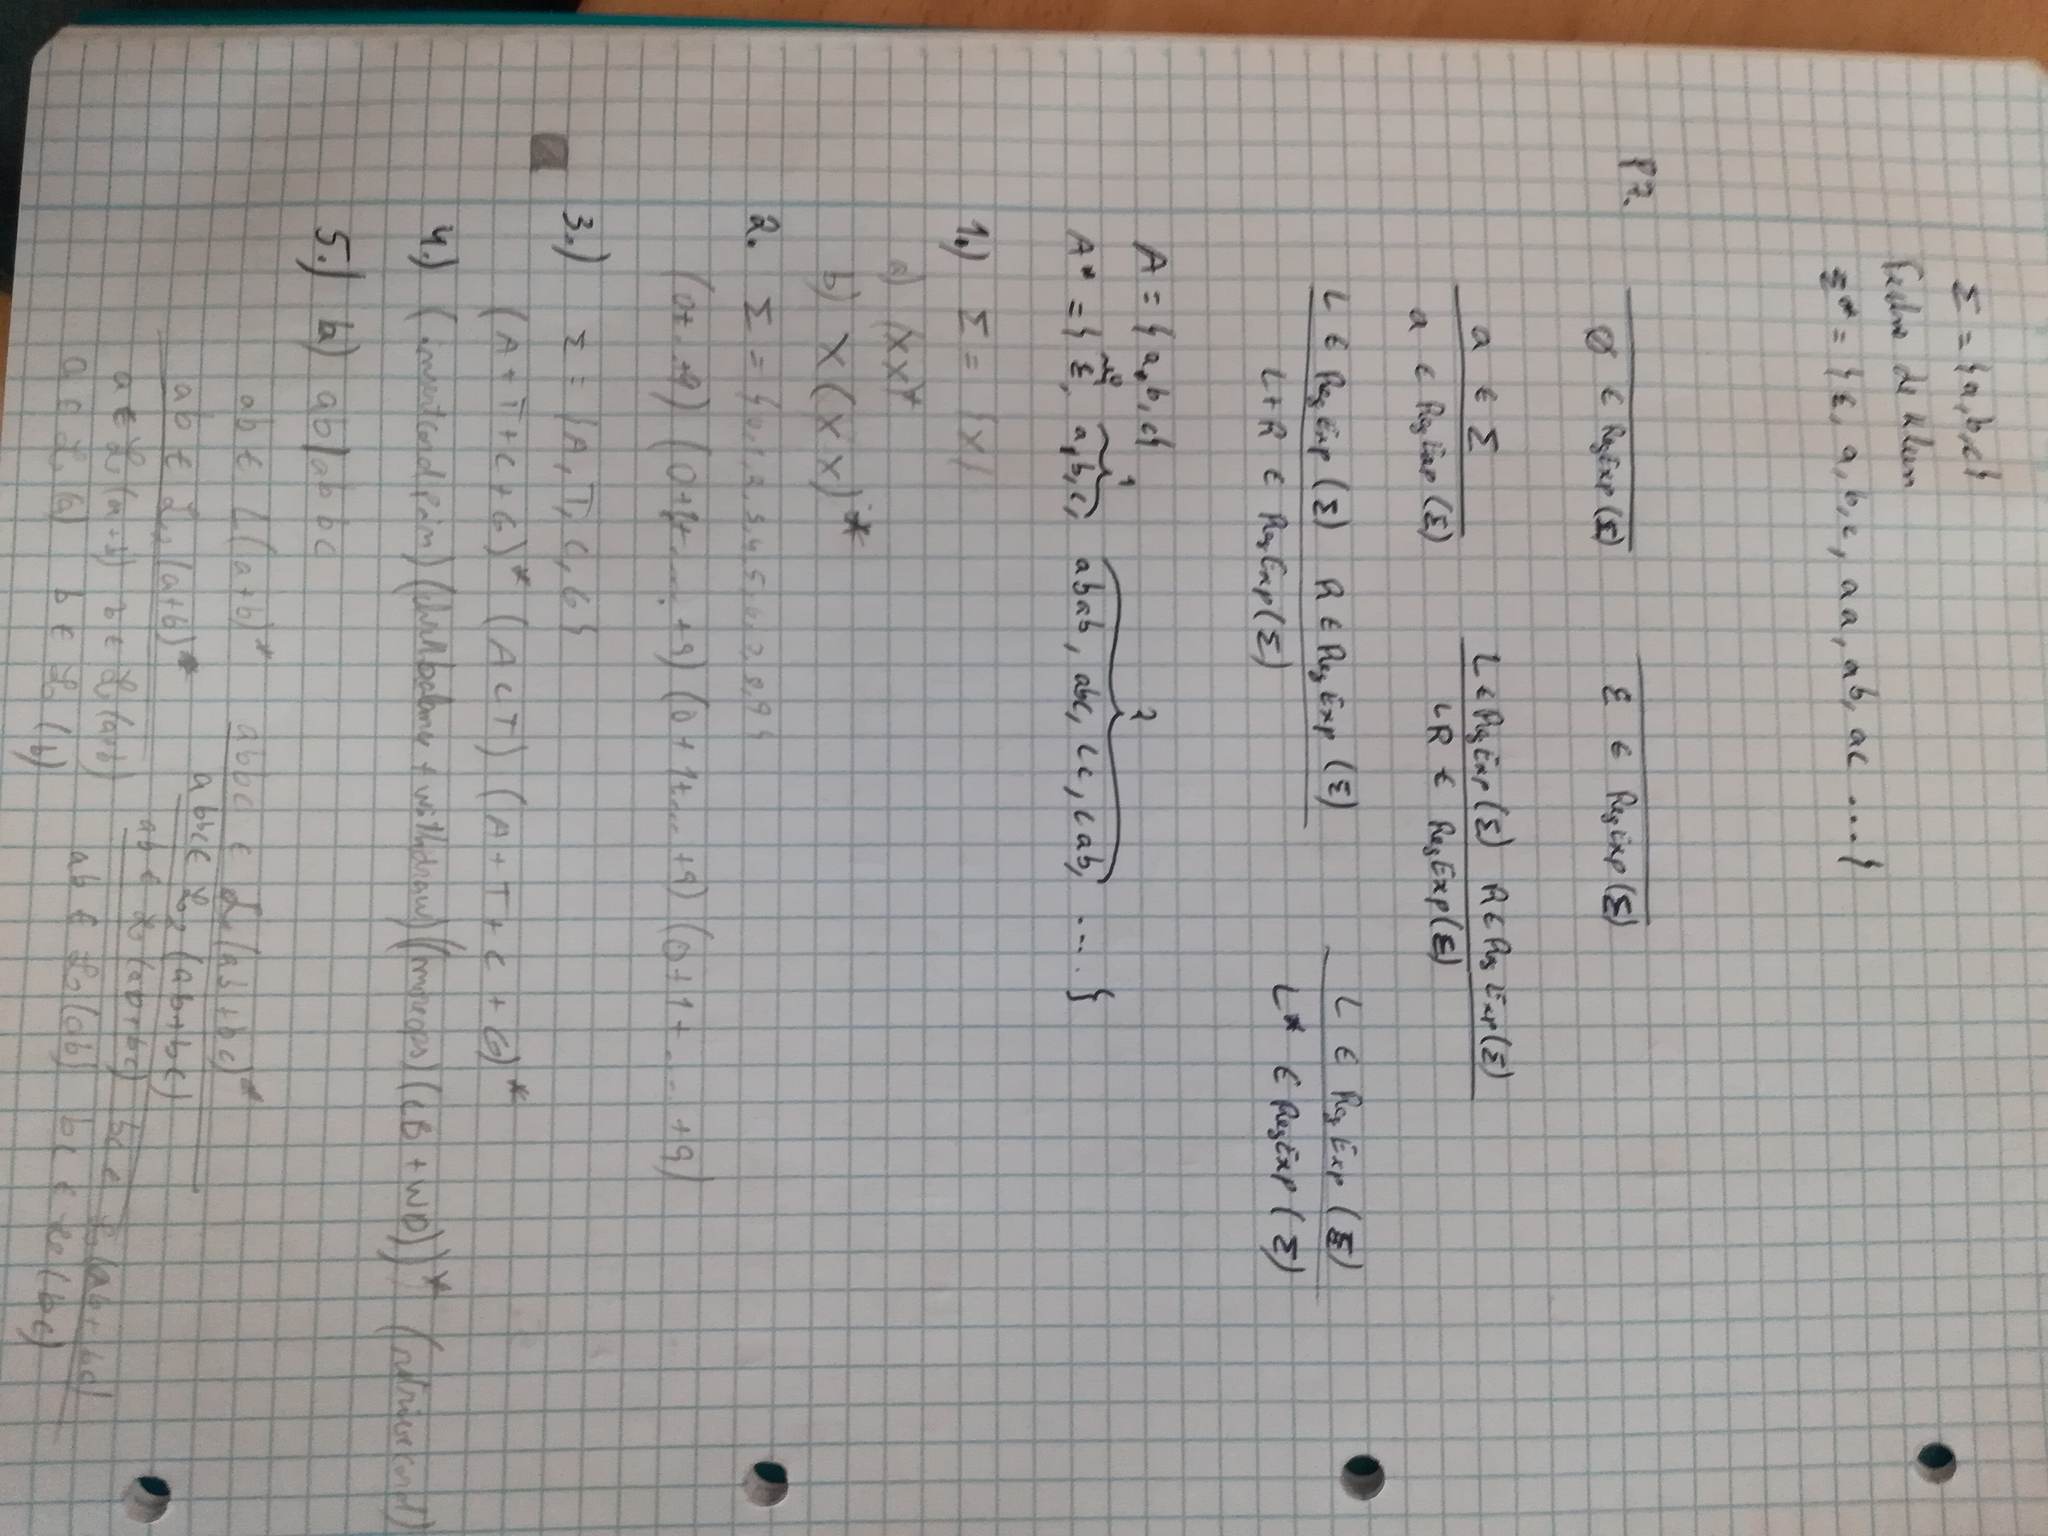 Σ = {a, b, c}
Σ* = {ε, a, b, c, aa, ab, ac ....}
P7.
∅ ∈ RegExp(Σ) ε ∈ RegExp(Σ)
a ∈ Σ L ∈ RegExp(Σ) R ∈ RegExp(Σ)
a ∈ RegExp(Σ) LR ∈ RegExp(Σ)
L ∈ RegExp(Σ) R ∈ RegExp(Σ) L ∈ RegExp(Σ)
L+R ∈ RegExp(Σ) L* ∈ RegExp(Σ)
A = {a, b, c}
A* = {ε, a, b, c, abab, abc, cc, cab, ....}
1.) Σ = {X}
a) (XX)*
b) X(XX)*
2. Σ = {0,1,2,3,4,5,6,7,8,9}
(0+..+9) (0+1+....+9) (0+1+...+9) (0+1+....+9)
3.) Σ = {A, T, C, G}
(A+T+C+G)* (ACT) (A+T+C+G)*
4.) (insertcard pin) (chkbalance + withdraw) ((moreops) (CB + WD))* (retrieve card)
5.) a) ab b) abbc
ab ∈ L(a+b)* abbc ∈ L(ab+bc)*
ab ∈ L₂(a+b)* abbc ∈ L₂(ab+bc)
a ∈ L(a+b) b ∈ L(a+b) ab ∈ L(ab+bc) bc ∈ L(ab+bc)
a ∈ L(a) b ∈ L(b) ab ∈ L(ab) bc ∈ L(bc)